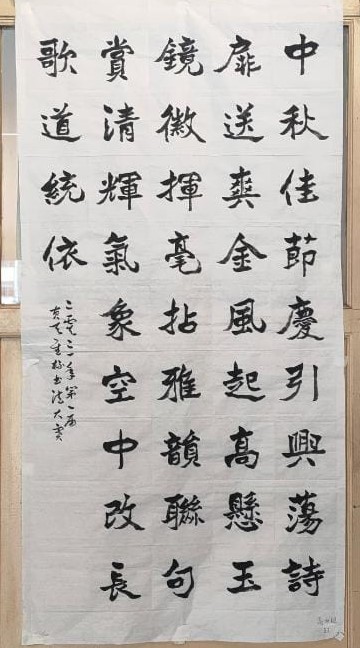 中秋佳節慶引興蕩詩
扉送爽金風起高懸玉
鏡徽揮毫拈雅韻聯句
賞清輝氣象空中改長
歌道統依
二零二一年第一屆
書法大賽